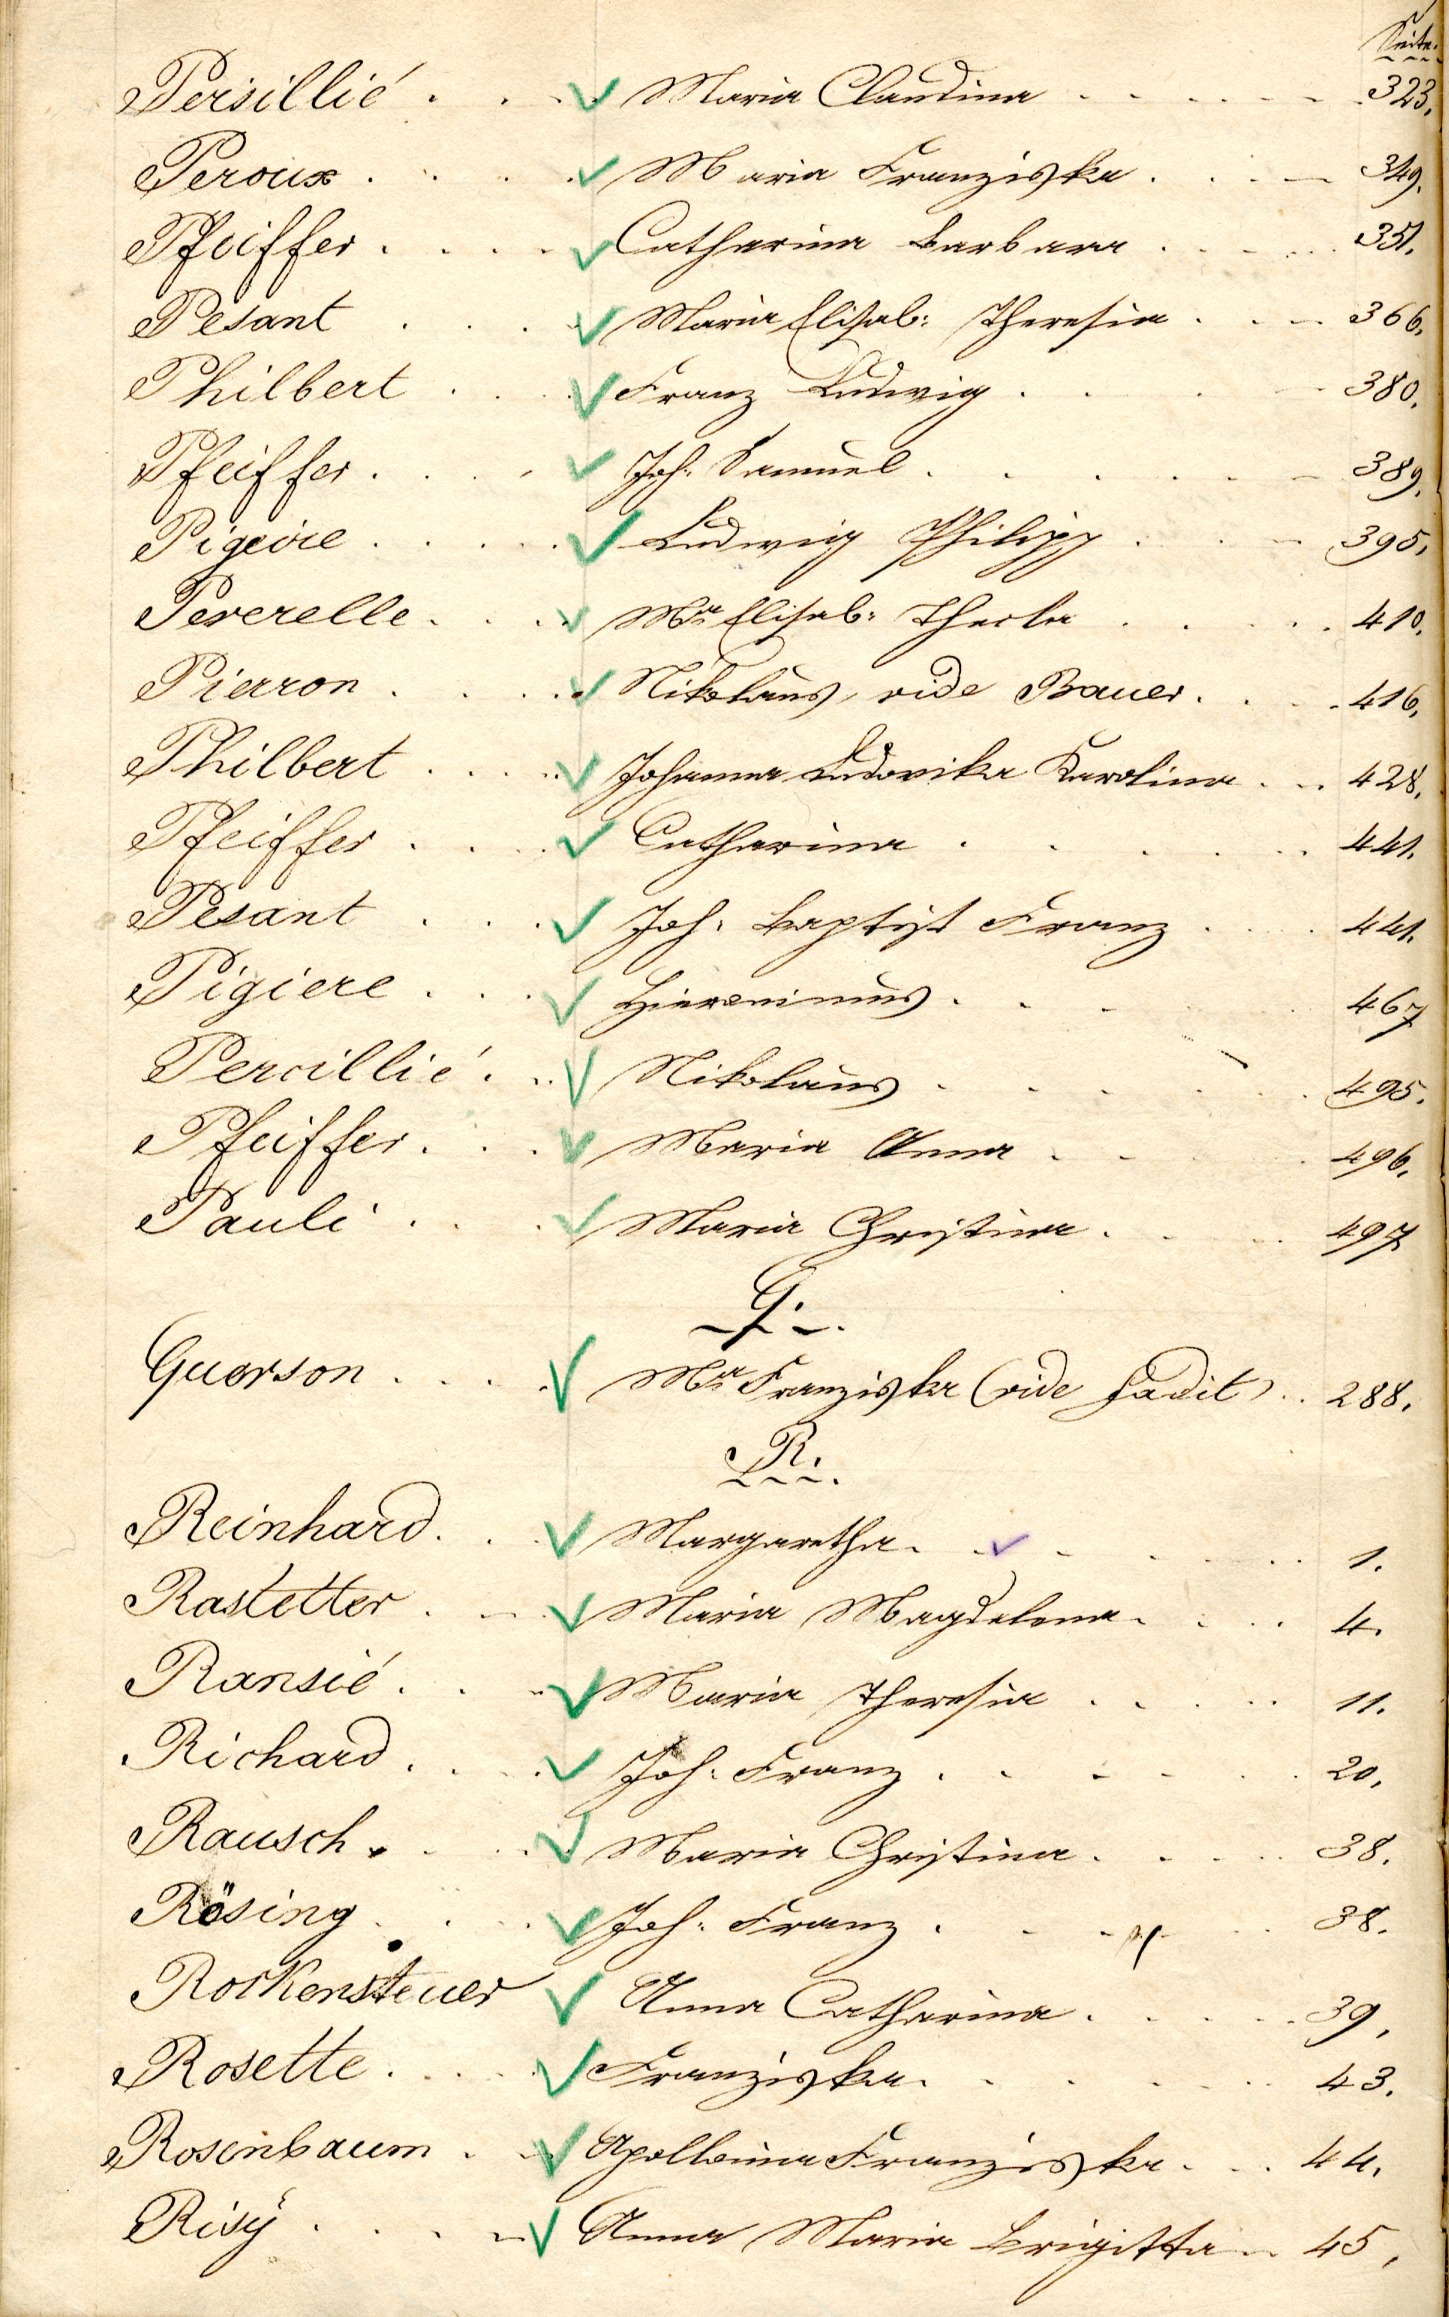 Seite.
Persillié . . . Maria Claudina . . . . . . 323.
Peroux . . . . Maria Franziska . . . . 349.
Pfeiffer . . . . Catharina Barbara . . . . 351.
Pesant . . . . Maria Elisab: Theresia . . . 366.
Philbert . . . Franz Ludwig . . . . 380.
Pfeiffer . . . . Joh: Samuel . . . . . 389.
Pigeire . . . . . Ludwig Philipp . . . 395.
Peverelle . . . . Ma Elisab: Thecla . . . . 410.
Pierron . . . . Nikolaus, vide Bauer . . . . 416.
Philbert . . . . Johanna Ludovika Karolina . . . 428.
Pfeiffer . . . . Catharina . . . . . . 441.
Pesant . . . . Joh: Baptist Franz . . . . 441.
Pigiere . . . . Hieronimus . . . . . 467
Percillié . . . Nikolaus . . . . . . 495.
Pfeiffer . . . . Maria Anna . . . . . 496.
Pauli . . . . Maria Christina . . . . . 497
Q.
Querson . . . . Ma Franziska (vide Hadit) . . 288.
R.
Reinhard . . . Margaretha . . . . . . . 1.
Rastetter . . . Maria Magdalena . . . . 4.
Ransié . . . Maria Theresia . . . . . 11.
Richard . . . . Joh: Franz . . . . . . 20.
Rausch . . . . Maria Christina . . . . . 38.
Rösing . . . . Joh: Franz . . . . . 38.
Rockensteuer Anna Catharina . . . . . 39.
Rosette . . . . Franziska . . . . . . 43.
Rosenbaum . . . Apollonia Franziska . . . 44.
Risÿ . . . . Anna Maria Brigitta . . 45.